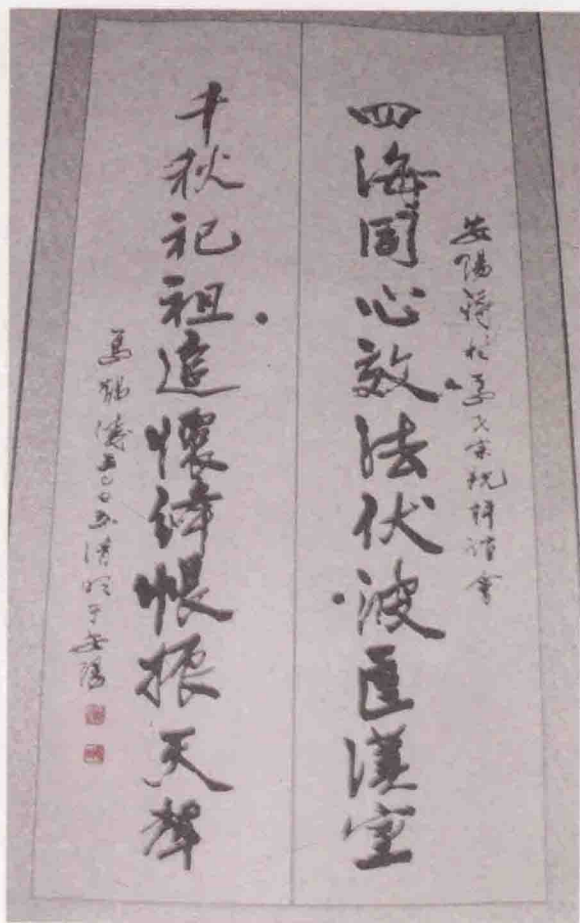 安陽蔣村馬氏宗會
四海同心效法伏波匡漢室
千秋祀祖追懷絳帳振天聲
馬錫濤清明于安陽